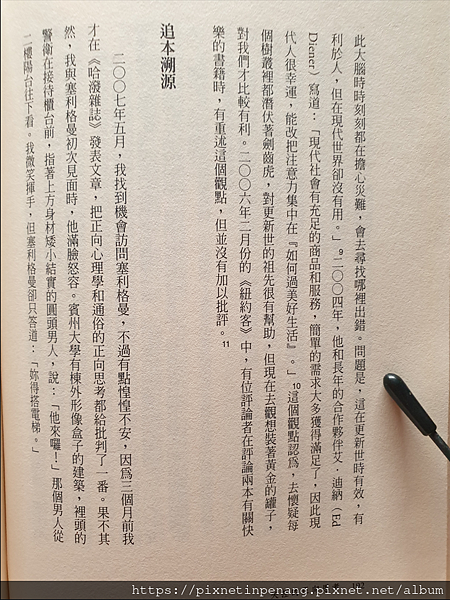 此大腦時時刻刻都在擔心災難，會去尋找哪裡出錯。問題是，這在更新世時有效，有
利於人，但在現代世界卻沒有用。」9二〇〇四年，他和長年的合作夥伴艾．迪納（Ed
Diener）寫道：「現代社會有充足的商品和服務，簡單的需求大多獲得滿足了，因此現
代人很幸運，能改把注意力集中在『如何過美好生活』。」10這個觀點認為，去懷疑每
個樹叢裡都潛伏著劍齒虎，對更新世的祖先很有幫助，但現在去觀想裝著黃金的罐子，
對我們才比較有利。二〇〇六年二月份的《紐約客》中，有位評論者在評論兩本有關快
樂的書籍時，有重述這個觀點，但並沒有加以批評。11
追本溯源
二〇〇七年五月，我找到機會訪問塞利格曼，不過有點惶惶不安，因為三個月前我
才在《哈潑雜誌》發表文章，把正向心理學和通俗的正向思考都給批判了一番。果不其
然，我與塞利格曼初次見面時，他滿臉怒容。賓州大學有棟外形像盒子的建築，裡頭的
警衛在接待櫃台前，指著上方身材矮小結實的圓頭男人，說：「他來囉！」那個男人從
二樓陽台往下看。我微笑揮手，但塞利格曼卻只答道：「妳得搭電梯。」
https://pixnetinpenang.pixnet.net/album